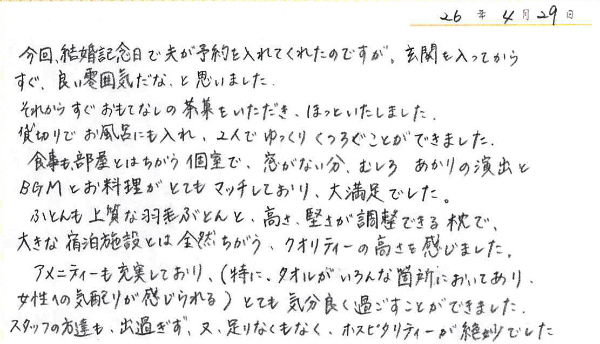 26年4月29日
今回、結婚記念日で夫が予約を入れてくれたのですが、玄関を入ってから
すぐ、良い雰囲気だな、と思いました。
それからすぐおもてなしの茶菓をいただき、ほっといたしました。
貸切りでお風呂にも入れ、2人でゆっくりくつろぐことができました。
食事も部屋とはちがう個室で、窓がない分、むしろあかりの演出と
BGMとお料理がとてもマッチしており、大満足でした。
ふとんも上質な羽毛ぶとんと、高さ、堅さが調整できる枕で、
大きな宿泊施設とは全然ちがう、クオリティーの高さを感じました。
アメニティーも充実しており、(特に、タオルがいろんな箇所においてあり、
女性への気配りが感じられる)とても気分良く過ごすことができました。
スタッフの方達も、出過ぎず、又、足りなくもなく、ホスピタリティーが絶妙でした